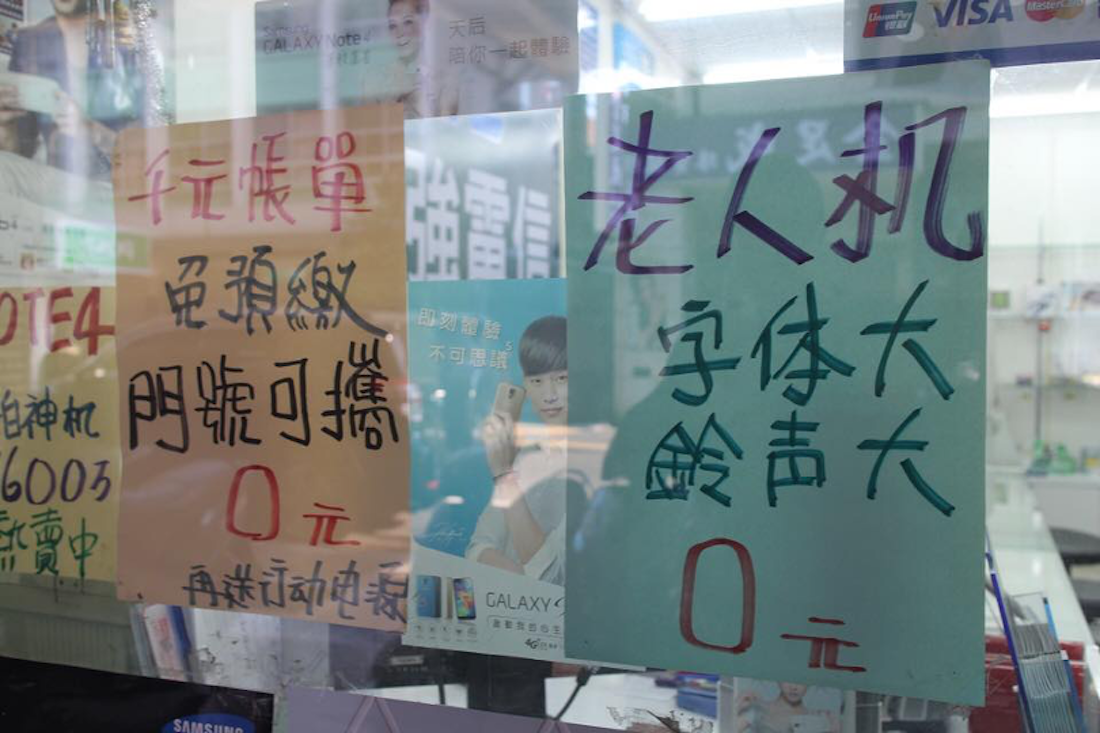 SAMSUNG
GALAXY Note 4
天后
陪你一起體驗
UnionPay
VISA
MasterCard
OTE4
拍神机
6005
熱賣中
千元帳單
免預繳
門號可攜
0元
再送行动电源
強電信
即刻體驗
不可思議
GALAXY S
4G
老人机
字体大
鈴声大
0元
SAMSUNG